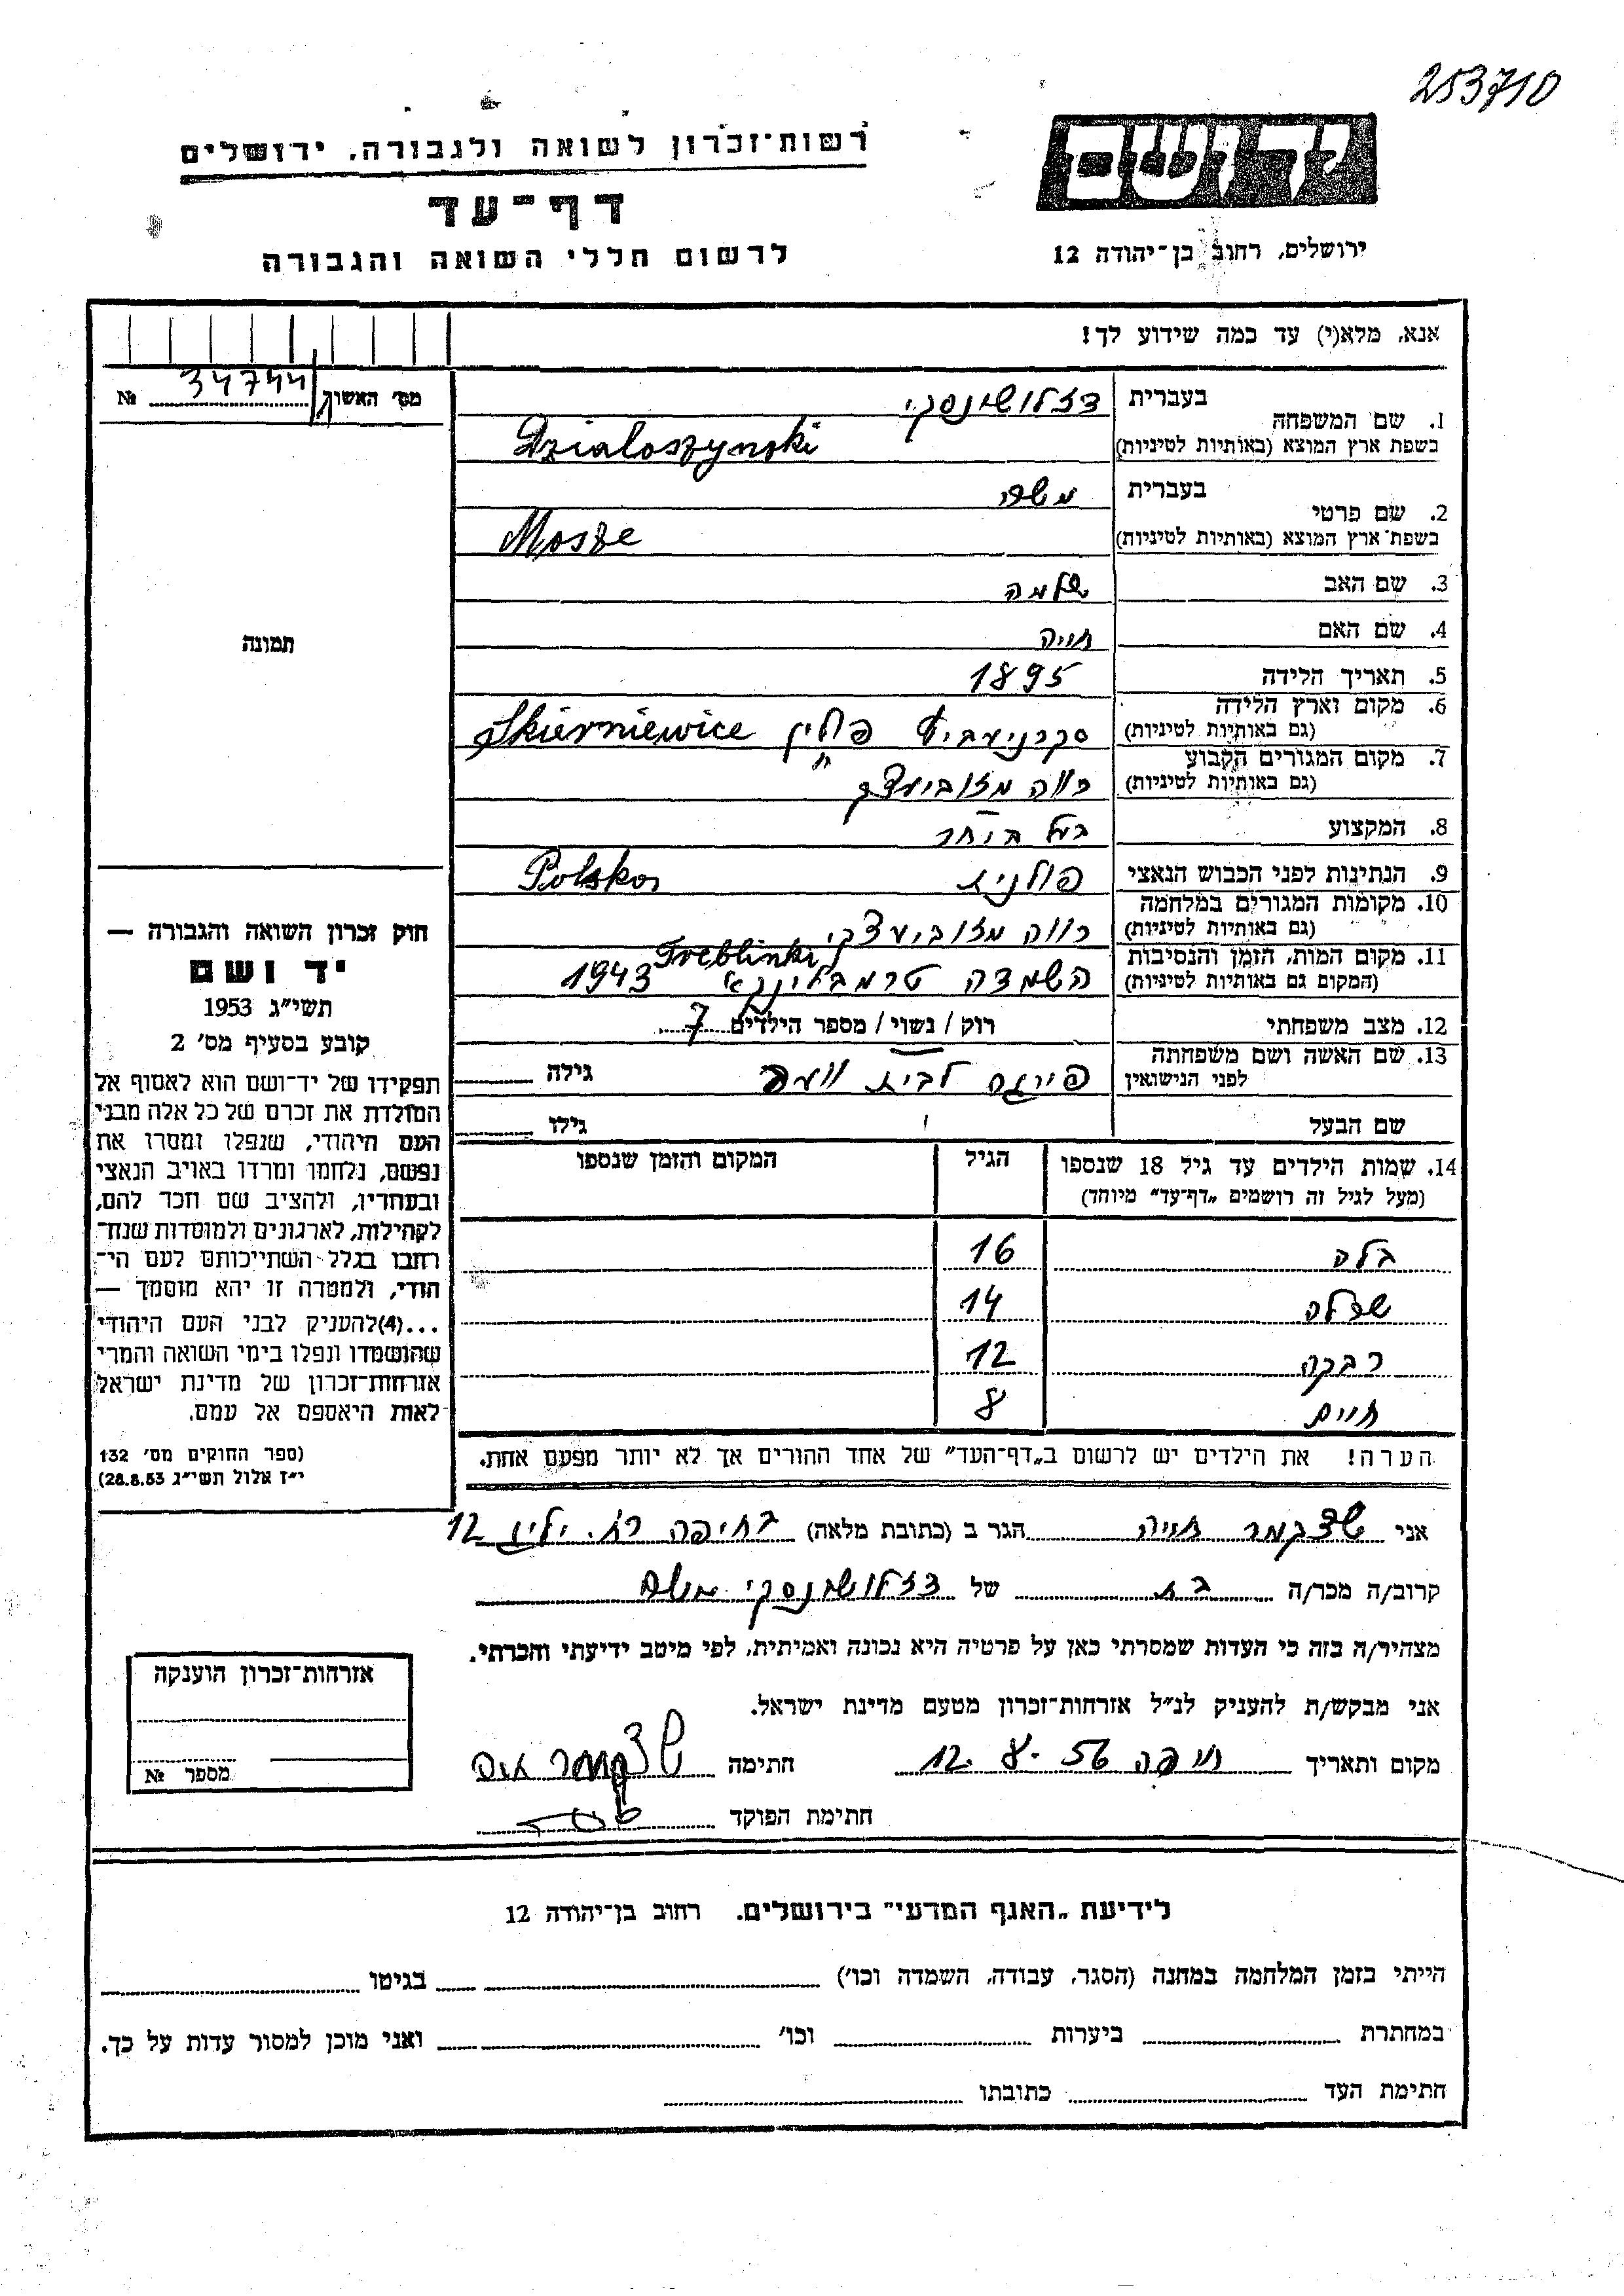 253710
רשות־זכרון לשואה ולגבורה, ירושלים
יד ושם
דף־עד
לרשום חללי השואה והגבורה
ירושלים, רחוב בן־יהודה 12
אנא, מלא(י) עד כמה שידוע לך!
מס' האשוך № 34744
1. שם המשפחה
בעברית דזלושינסקי
בשפת ארץ המוצא (באותיות לטיניות) Dzialoszynski
2. שם פרטי
בעברית משה
בשפת־ארץ המוצא (באותיות לטיניות) Mosze
3. שם האב שלמה
4. שם האם חויה
תמונה
5. תאריך הלידה 1895
6. מקום וארץ הלידה
(גם באותיות לטיניות) סקרניעביץ פולין Skierniewice
7. מקום המגורים הקבוע
(גם באותיות לטיניות) רווה מזוביעצקי
8. המקצוע
9. הנתינות לפני הכבוש הנאצי פולנית Polska
10. מקומות המגורים במלחמה
(גם באותיות לטיניות) רווה מזוביעצקי
11. מקום המות, הזמן והנסיבות
(המקום גם באותיות לטיניות) השמדה טרמבלינקא Treblinki 1943
12. מצב משפחתי רוק / נשוי / מספר הילדים 7
13. שם האשה ושם משפחתה
לפני הנישואין לבית גילה
שם הבעל גילו
14. שמות הילדים עד גיל 18 שנספו
(מעל לגיל זה רושמים „דף־עד” מיוחד)
הגיל
המקום והזמן שנספו
בלה 16
שרלה 14
רבקה 12
חיים 8
הערה! את הילדים יש לרשום ב„דף־העד” של אחד ההורים אך לא יותר מפעם אחת.
חוק זכרון השואה והגבורה —
יד ושם
תשי״ג 1953
קובע בסעיף מס' 2
תפקידו של יד־ושם הוא לאסוף אל
המולדת את זכרם של כל אלה מבני
העם היהודי, שנפלו ומסרו את
נפשם, נלחמו ומרדו באויב הנאצי
ובעוזריו, ולהציב שם וזכר להם,
לקהילות, לארגונים ולמוסדות שנח־
רבו בגלל השתייכותם לעם הי־
הודי, ולמטרה זו יהא מוסמך —
...(4)להעניק לבני העם היהודי
שהושמדו ונפלו בימי השואה והמרי
אזרחות־זכרון של מדינת ישראל
לאות היאספם אל עמם.
(ספר החוקים מס' 132
י״ז אלול תשי״ג 28.8.53)
אני חויה הגר ב (כתובת מלאה) בחיפה רח. ילין 12
קרוב/ה מכר/ה בת של דזלושנסקי משה
מצהיר/ה בזה כי העדות שמסרתי כאן על פרטיה היא נכונה ואמיתית, לפי מיטב ידיעתי והכרתי.
אני מבקש/ת להעניק לנ״ל אזרחות־זכרון מטעם מדינת ישראל.
מקום ותאריך חיפה 12.8.56 חתימה
חתימת הפוקד
אזרחות־זכרון הוענקה
מספר №
לידיעת „האגף המדעי” בירושלים. רחוב בן־יהודה 12
הייתי בזמן המלחמה במחנה (הסגר, עבודה, השמדה וכו') בגיטו
במחתרת ביערות וכו' ואני מוכן למסור עדות על כך.
חתימת העד כתובתו